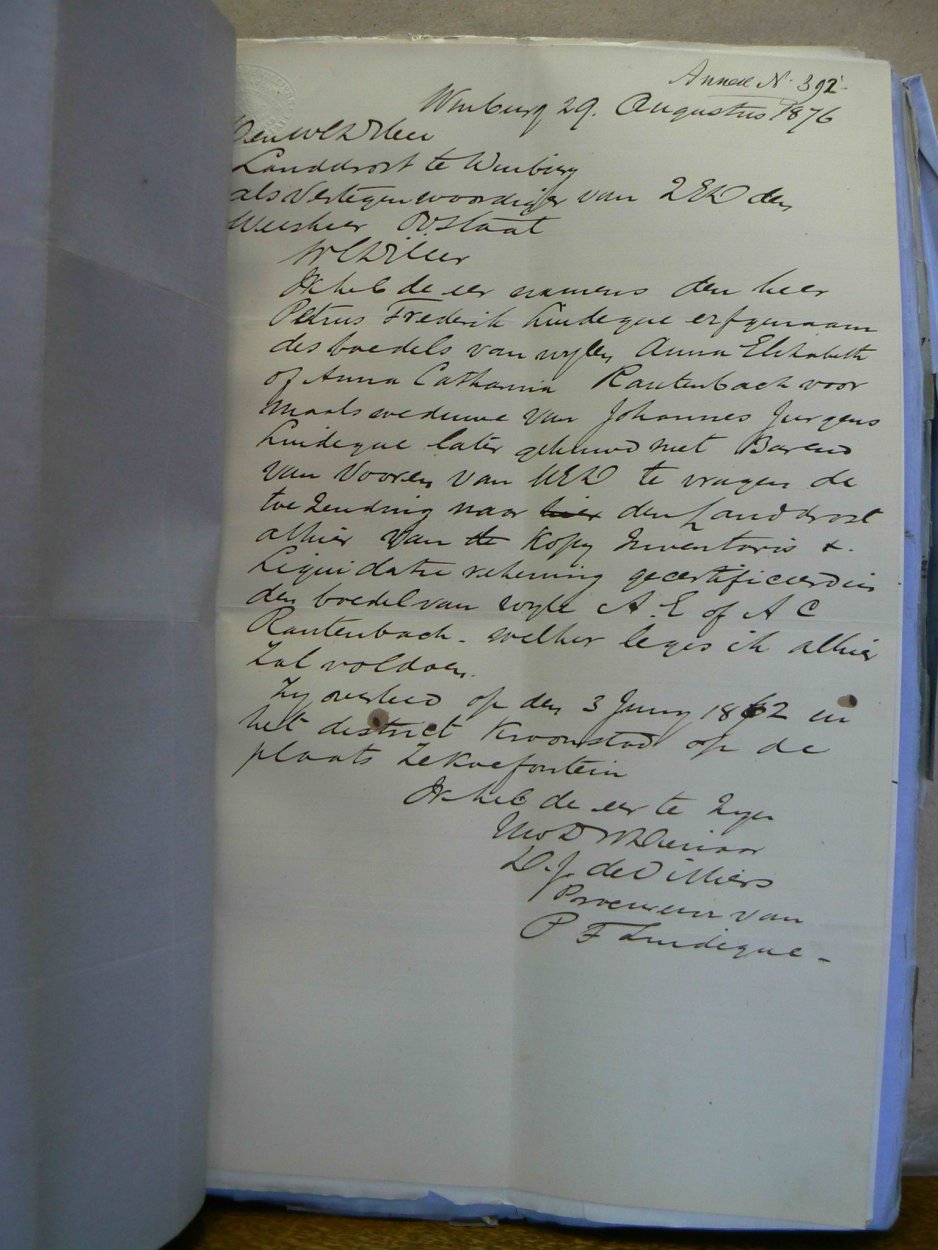 Annexe No. 392.
Winburg 29. Augustus 1876
Den WEd Heer
Landdrost te Winburg
als Vertegenwoordiger van ZEd den
Weesheer O.V. Staat
WEd Heer
Ik heb de eer namens den heer
Petrus Frederik Lindeque erfgenaam
des boedels van wylen Anna Elizabeth
of Anna Catharina Rautenbach voor
maals weduwe van Johannes Jurgens
Lindeque later gehuwd met Barend
van Vooren van UEd te vragen de
toezending naar hier den Landdrost
alhier van de kopy Inventaris &
Liquidatie rekening gecertificeerd in
den boedel van wyle A. E of A C
Rautenbach. welker leges ik alhier
Zal voldoen.
Zy overleed op den 3 Juny 1862 in
het district Kroonstad op de
plaats Zekoefontein
Ik heb de eer te Zyn
UwEd WDienaar
D. J. de Villiers
Procureur van
P F Lindeque.